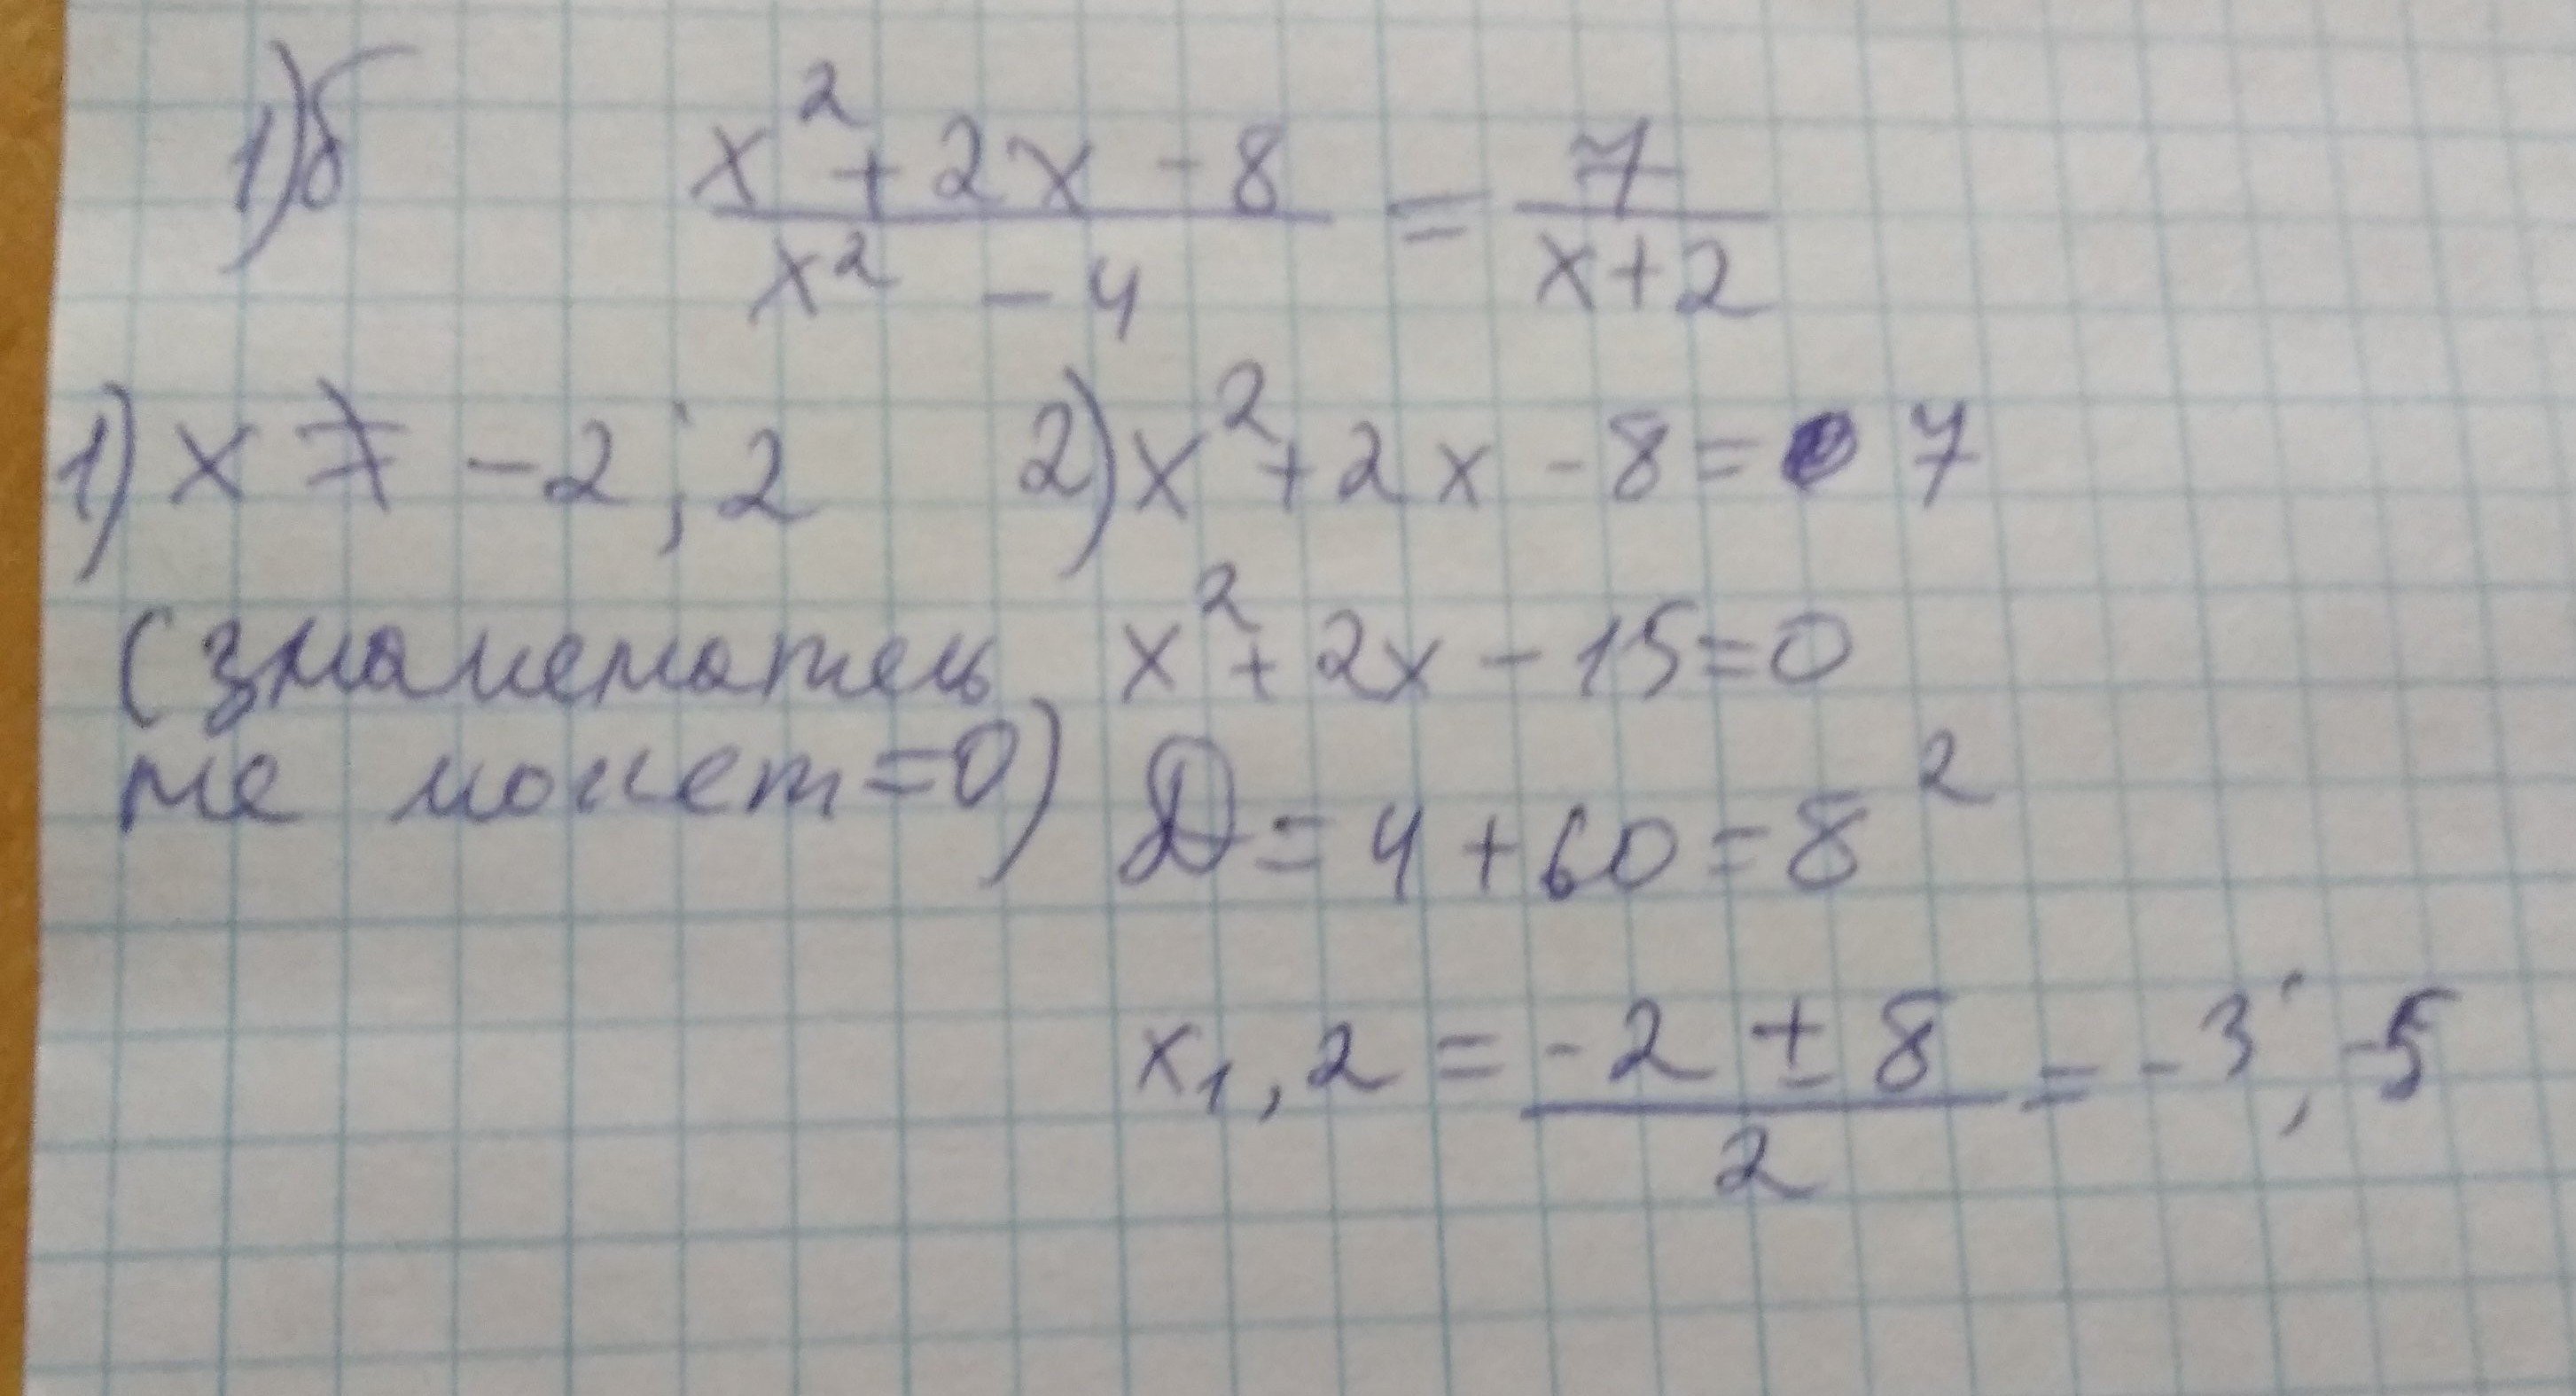 1)б x²+2x-8/x²-4 = 7/x+2
1) x ≠ -2; 2
(знаменатель
не может=0)
2) x²+2x-8= 7
x²+2x-15=0
D=4+60=8²
x1,2 = -2±8/2 = -3; -5